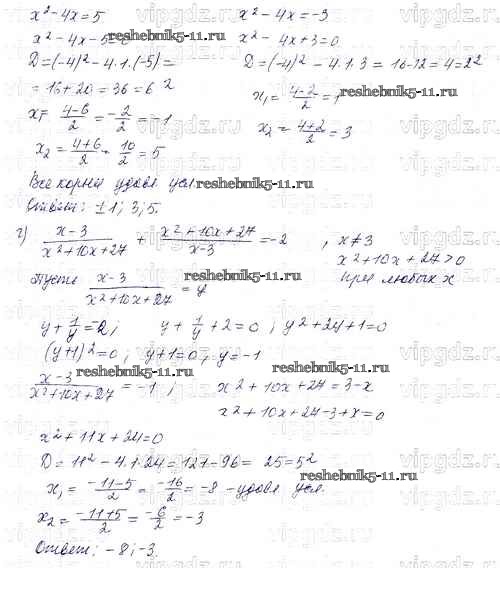 x² - 4x = 5
x² - 4x = -3
x² - 4x - 5 = 0
x² - 4x + 3 = 0
D = (-4)² - 4·1·(-5) =
D = (-4)² - 4·1·3 = 16-12 = 4 = 2²
= 16 + 20 = 36 = 6²
x₁ = (4-2)/2 = 1
x₁ = (4-6)/2 = -2/2 = -1
x₂ = (4+2)/2 = 3
x₂ = (4+6)/2 = 10/2 = 5
Все корни удовл усл.
reshebnik5-11.ru
Ответ: ±1; 3; 5.
г) (x-3)/(x²+10x+27) + (x²+10x+27)/(x-3) = -2 , x≠3
x²+10x+27>0
при любых x
Пусть (x-3)/(x²+10x+27) = y
reshebnik5-11.ru
y + 1/y = -2; y + 1/y + 2 = 0; y² + 2y + 1 = 0
(y+1)² = 0; y+1 = 0; y = -1
reshebnik5-11.ru
(x-3)/(x²+10x+27) = -1; x² + 10x + 27 = 3-x
x² + 10x + 27 - 3 + x = 0
x² + 11x + 24 = 0
D = 11² - 4·1·24 = 121 - 96 = 25 = 5²
reshebnik5-11.ru
x₁ = (-11-5)/2 = -16/2 = -8 - удовл усл.
x₂ = (-11+5)/2 = -6/2 = -3
Ответ: -8; -3.